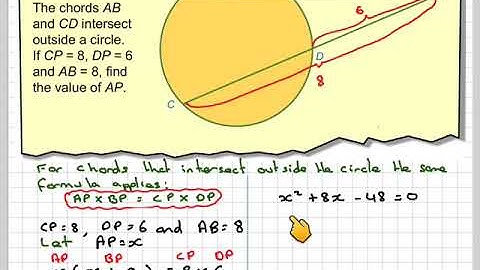 The chords AB
and CD intersect
outside a circle.
If CP = 8, DP = 6
and AB = 8, find
the value of AP.
6
D
8
C
For chords that intersect outside the circle the same
formula applies:
AP × BP = CP × DP
x² + 8x - 48 = 0
CP = 8, DP = 6 and AB = 8
Let AP = x
AP BP CP DP